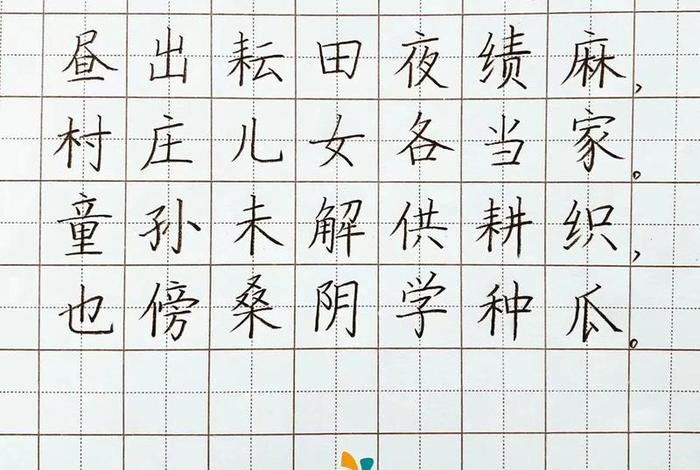 昼出耘田夜绩麻,
村庄儿女各当家。
童孙未解供耕织,
也傍桑阴学种瓜。